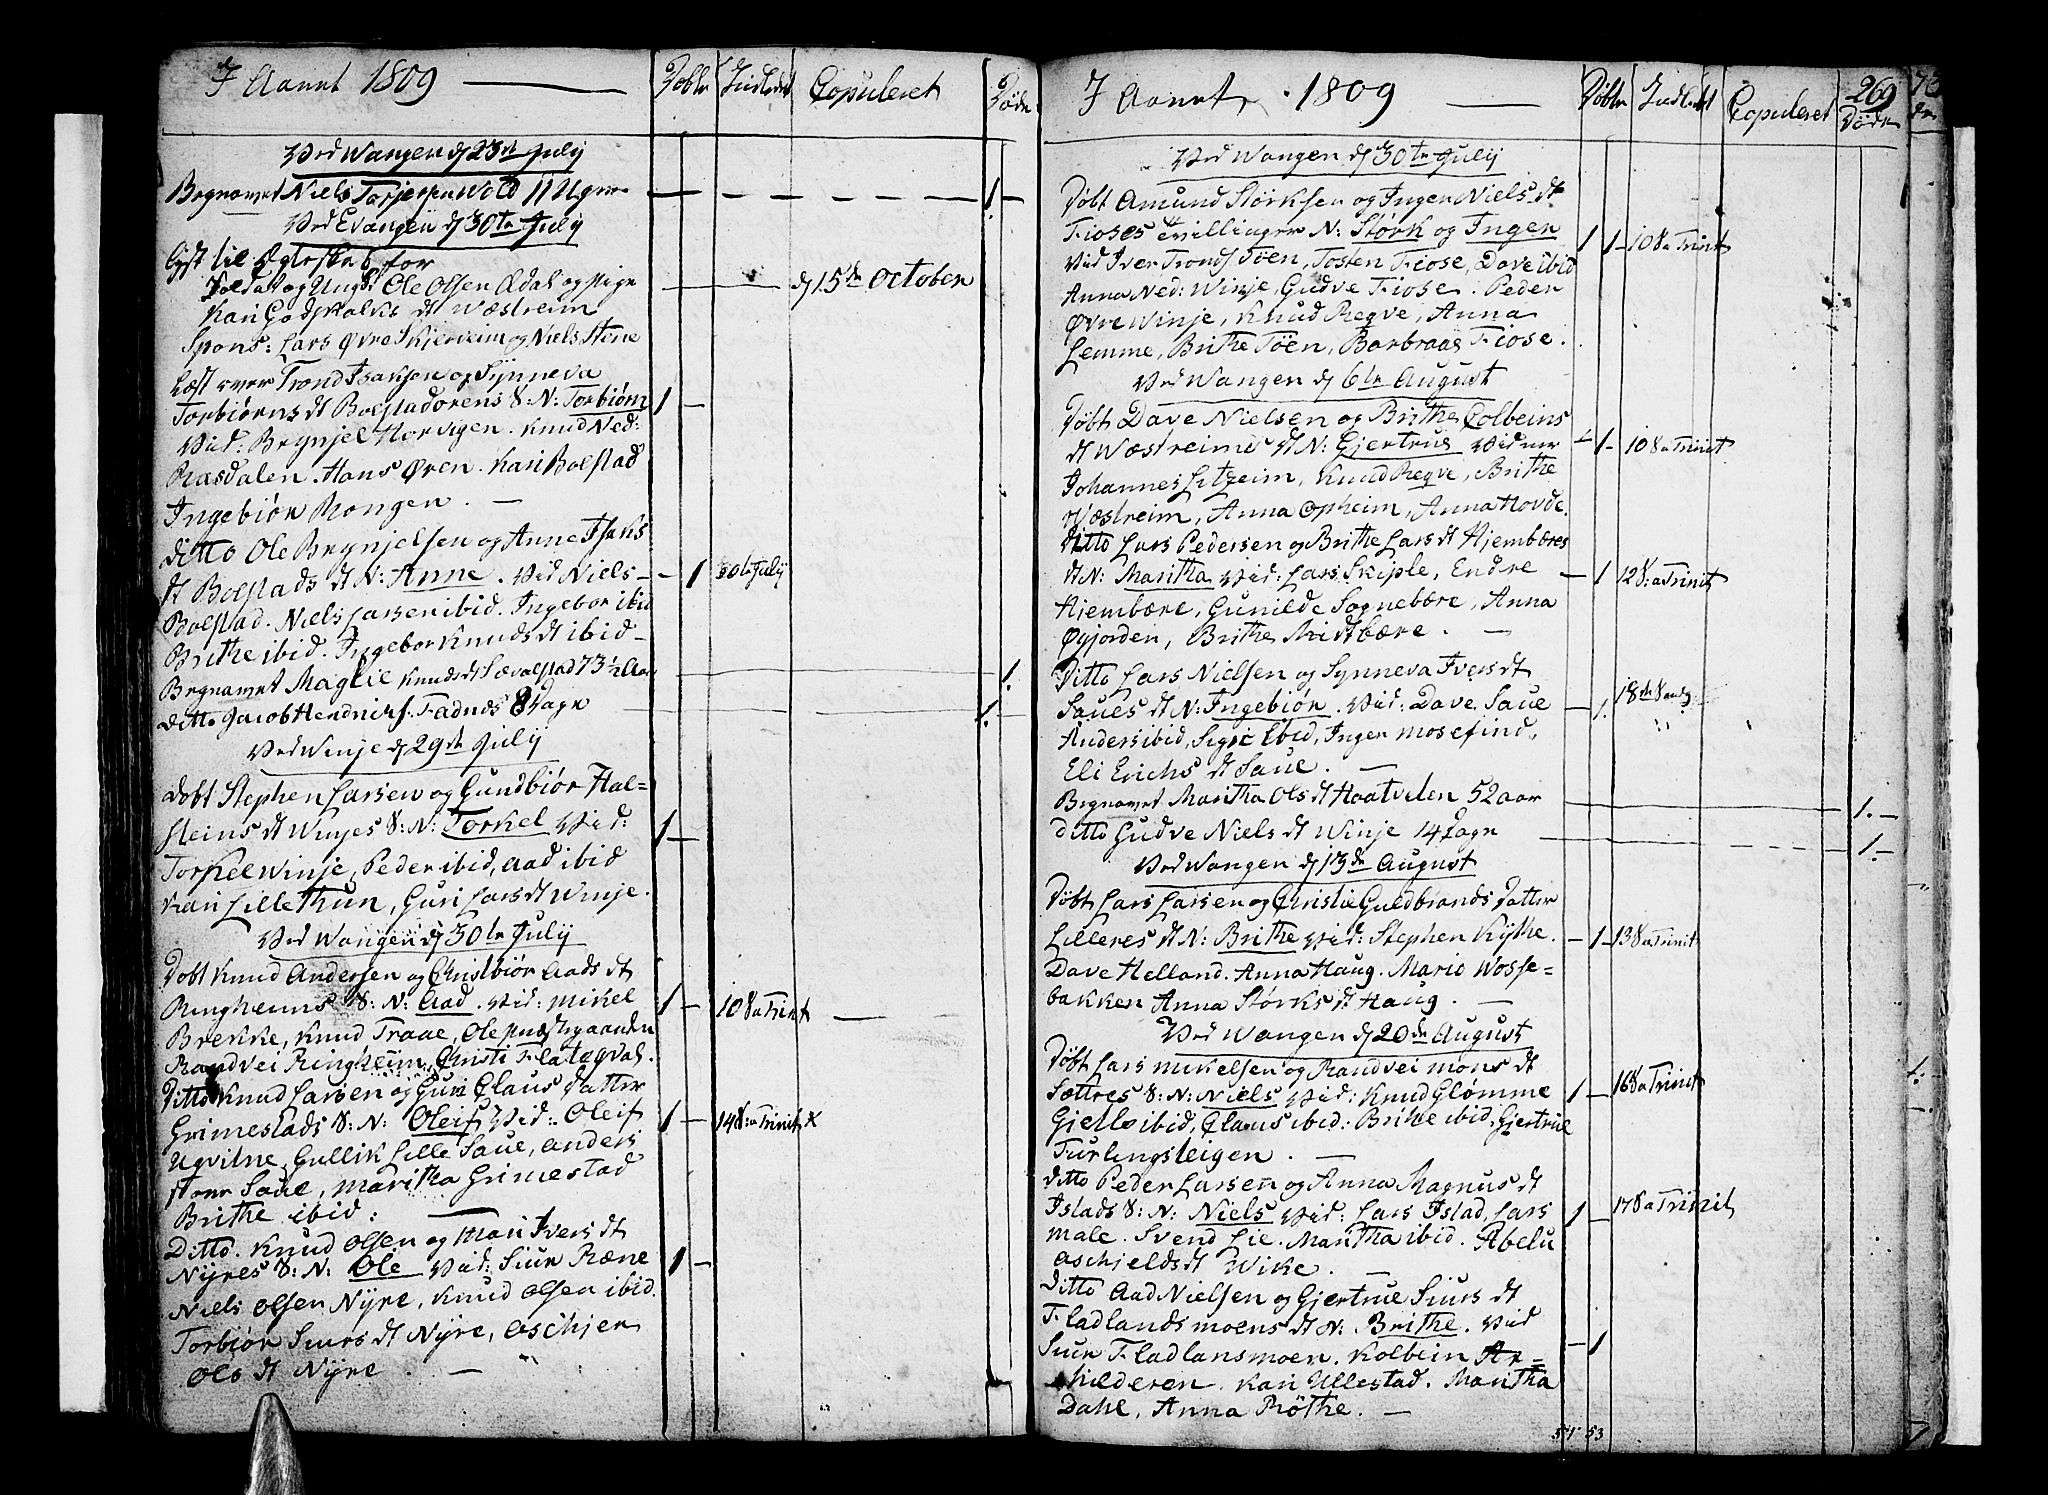 I Aaret 1809 Døbte Indledet Copuleret Døde
Ved Wangen d 23de July
Begravet Niels Torjersen Wold 11 Uger 1
Ved Evangen d 30te July
Lyst til Ægteskab for
Soldat og Ungk Ole Olsen Ædal og Pige d 15de October
Kari Godskalks dt Wæstreim
Spons: Lars Øvre Skjerveim og Niels Stene
Læst over Trond Isaksen og Synneva
Torbiørns dt Bolstadørens S: N: Torbiørn 1
Vid: Brynjel Horvigen. Knud Ned:
Rasdalen. Hans Øren. Kari Bolstad
Ingebiør Rongen.
Ditto Ole Brynjelsen og Anne Isaks
dt Bolstads dt N: Anne. Vid Niels 1 30te July
Bolstad. Niels Larsen ibid. Ingebor ibid
Brithe ibid. Ingebor Knuds dt ibid
Begravet Maglie Knuds dt Sævalstad 73 1/2 Aar 1.
Ditto Jacob Hendriks. Fadnes 8 Dage 1.
Ved Winje d 29de July
Døbt Stephen Larsen og Gundbiør Hal=
steins dt Winjes S: N: Torkel Vid: 1
Torkel Winje, Peder ibid, Aad ibid
Kari Lille Thun, Guri Lars dt Winje.
Ved Wangen d 30te July
Døbt Knud Andersen og Christbiør Aads dt
Ringheims S: N: Aad. Vid: Mikel 1 10 S a Trinit
Brekke, Knud Traae, Ole Præstegaarden
Randvei Ringheim, Christi Flateqval.
Ditto Knud Larsen og Guri Claus Datter
Grimestads S: N: Oleif Vid: Oleif 1 14 S: a Trinit x
Ugvitne, Gullik Lille Saue, Anders
Store Saue, Maritha Grimestad
Brithe ibid:
Ditto. Knud Olsen og Mari Ivers dt
Nyres S: N: Ole Vid: Siur Ræne 1
Niels Olsen Nyre, Knud Olsen ibid.
Torbiør Siurs dt Nyre, Aschjer
Ols dt Nyre
I Aaret 1809 Døbte Indledt Copuleret 269 Døde
Ved Wangen d 30te July
Døbt Amund Størksen og Inger Niels dt
Fioses Tvillinger N: Størk og Inger 1 1 10 S a Trinit
Vid Iver Tronds Töen, Tosten Fiose, Dave ibid
Anna Ned: Winje, Gudve Fiose. Peder
Øvre Winje, Knud Reqve, Anna
Lemme, Brithe Töen, Barbraae Fiose.
Ved Wangen d 6te August
Døbt Dave Nielsen og Brithe Colbeins
dt Wæstreims dt N: Gjertrue Vidner 1 10 S a Trinit
Johannes Litzeim, Knud Reqve, Brithe
Wæstreim, Anna Opheim, Anna Hovde.
Ditto Lars Pedersen og Brithe Lars dt Hjembæres
dt N: Maritha Vid: Lars Skiple, Endre 1 12 S: a Trinit
Hjembære, Gunilde Sognebære, Anna
Øyjorden, Brithe Midtbære.
Ditto Lars Nielsen og Synneva Ivers dt
Saues dt N: Ingebiør. Vid: Dave Saue 1.
Anders ibid, Sigri ibid, Inger Mosefind,
Eli Erichs dt Saue.
Begravet Maritha Ols dt Haatvelen 52 aar 1.
Ditto Gudve Niels dt Winje 14 Dage 1.
Ved Wangen d 13de August
Døbt Lars Larsen og Christie Guldbrands Datter
Lilleres dt N: Brithe Vid: Stephen Kythe. 1 13 S a Trinit
Dave Helland. Anna Haug. Mario Wosse=
bakken Anna Størks dt Haug.
Ved Wangen d 20de August
Døbt Lars Mikelsen og Randvei Mons dt
Sættres S: N: Niels Vid: Knud Glømme 1 16 S a Trinit
Gjelle ibid, Claus ibid: Brithe ibid, Gjertrue
Furlingsteigen.
Ditto Peder Larsen og Anna Magnus dt
Istads S: N: Niels Vid: Lars Istad, Lars 1 17 S a Trinit
Male. Svend Lie. Maritha ibid. Abelu
Aschjelds dt Wike.
Ditto Aad Nielsen og Gjertrue Siurs dt
Fladlandsmoens dt N: Brithe. Vid 1
Siur Fladlansmoen. Kolbein
hilderen. Kari Ullestad. Maritha
Dahl, Anna Røthe.
51 53